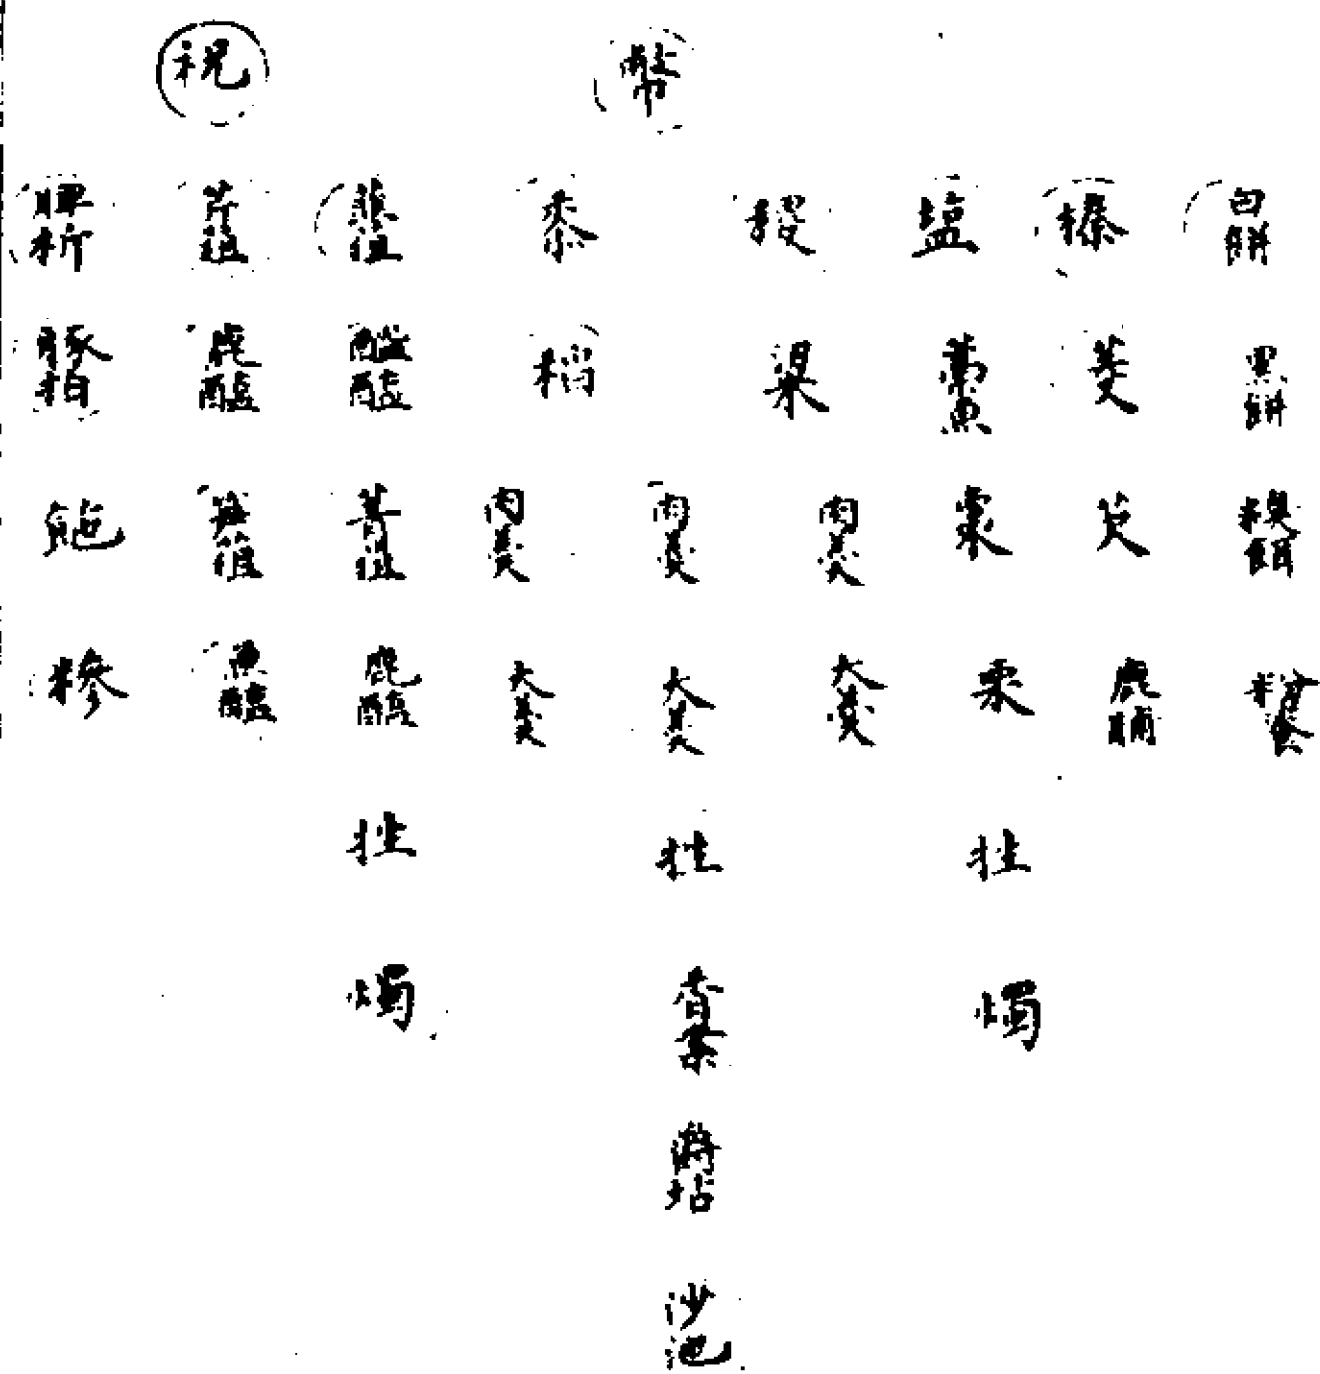 祝 幣
脾析 芹菹 韭菹 黍 稷 塩 榛 白餅
豚拍 醓醢 稻 粱 藁魚 菱 黒餅
菁菹 肉羹 肉羹 肉羹 棗 芡 糗餌
糝 魚醢 鹿醢 大羹 大羹 大羹 栗 鹿脯 粉餈
牲 牲 牲
燭 香案 燭
爵坫
沙池